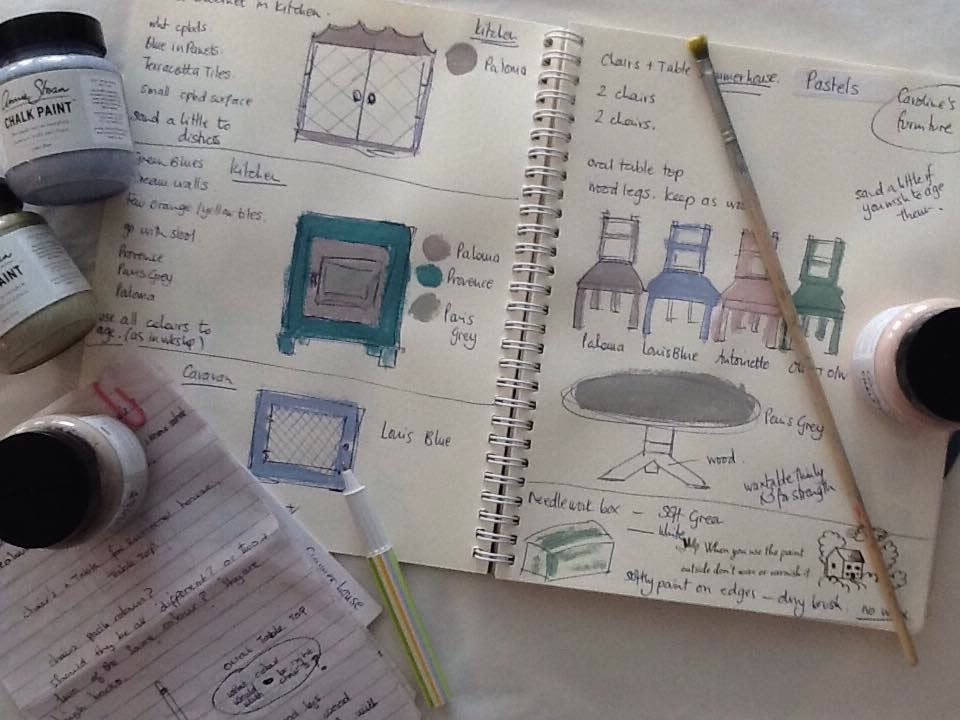 in kitchen.
kitchen
Blue in Panels.
Terracotta Tiles.
small cpbd surface
sand a little to
distress
Paloma
Annie Sloan
CHALK PAINT
Green Blues
kitchen
cream walls
few orange/yellow tiles.
go with stool
Provence
Paris Grey
Paloma
use all colours to
age. (as in wkshp)
Paloma
Provence
Paris
Grey
PAINT
Caravan
Louis Blue
Chairs + Table
summerhouse.
Pastels
Caroline's
furniture
2 chairs
2 chairs.
oval table top
wood legs. keep as
sand a little if
you wish to age
them.
Paloma
Louis Blue
Antoinette
Paris Grey
wood
wax table thinly
x3 for strength
Needlework box — soft Green
— white
Help When you use the paint
outside don't wax or varnish it
softly paint on edges — dry brush.
no wax
chairs + Table for summer house.
Table top.
chairs paint colours?
should they be all different? or two +
two of the same colour?
They are
high backs.
summer house
oval Table Top
what colour
would
legs
wood